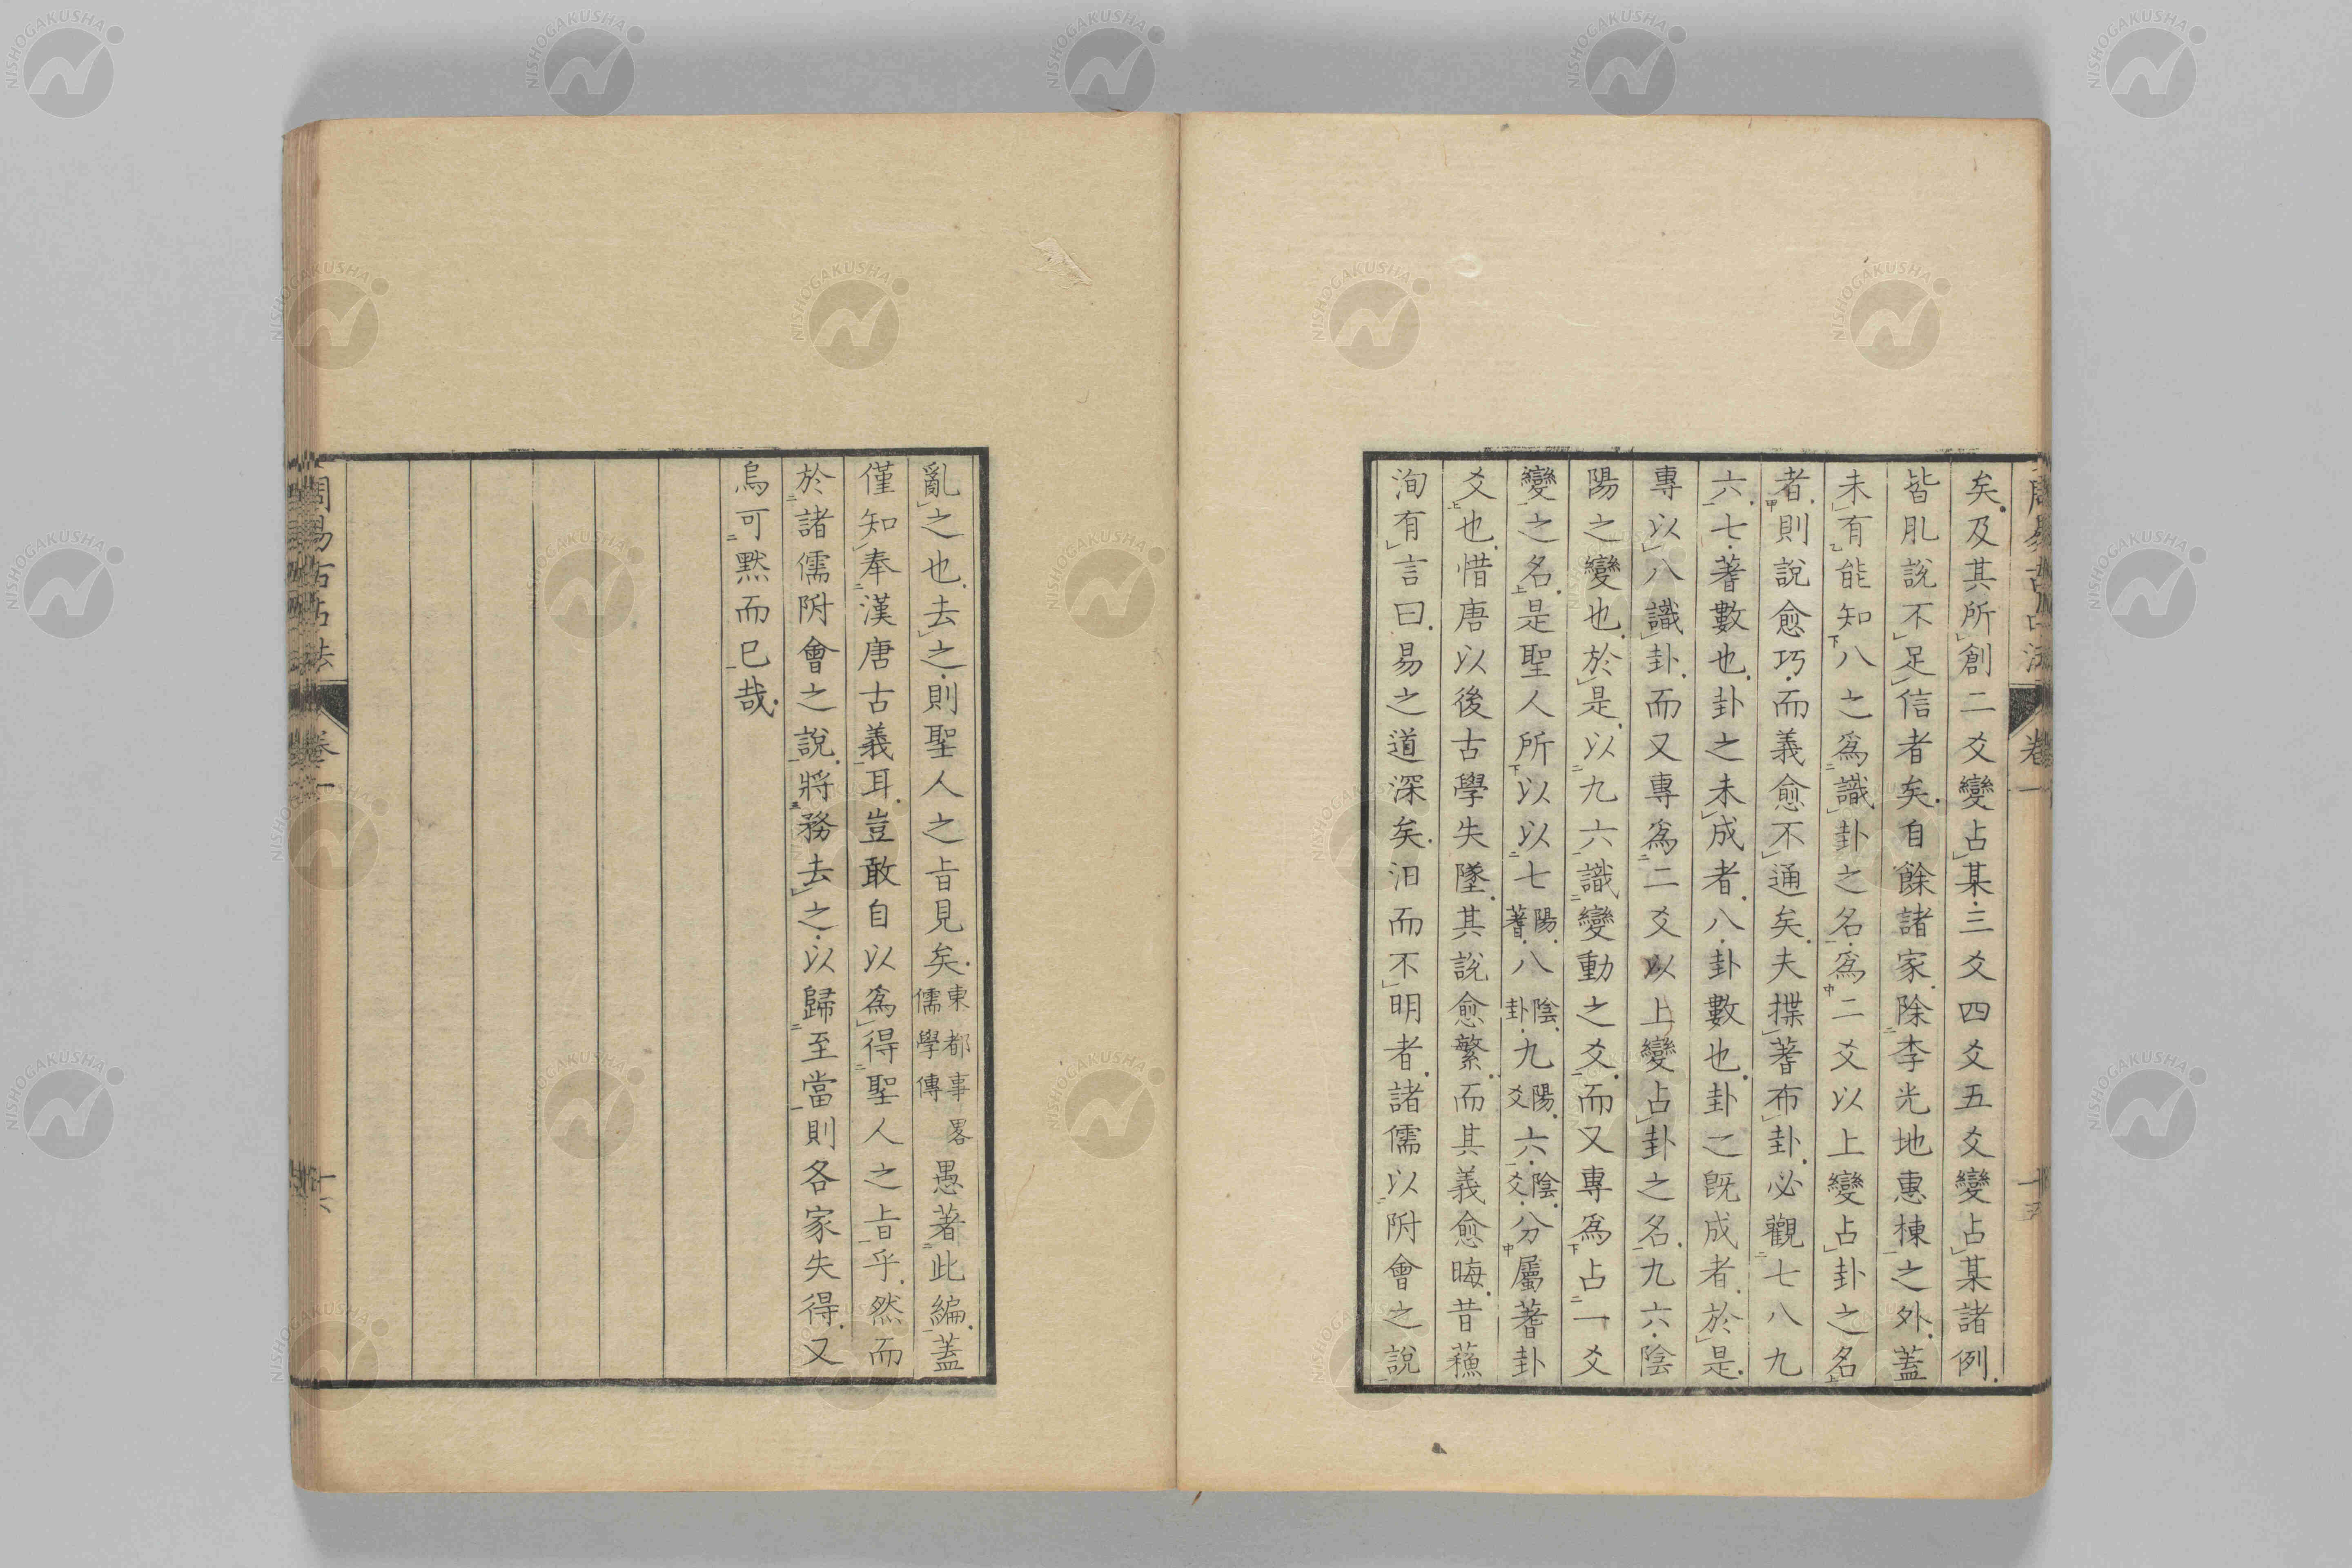 周易古占法 卷一 十五
矣及其所創二爻變占某三爻四爻五爻變占某諸例
皆肊說不足信者矣自餘諸家除李光地惠棟之外蓋
未有能知八之爲識卦之名爲二爻以上變占卦之名
者則說愈巧而義愈不通矣夫揲蓍布卦必觀七八九
六七蓍數也卦之未成者八卦數也卦之既成者於是
專以八識卦而又專爲二爻以上變占卦之名九六陰
陽之變也於是以九六識變動之爻而又專爲占一爻
變之名是聖人所以以七陽蓍八陰卦九陽爻六陰爻分屬蓍卦
爻也惜唐以後古學失墜其說愈繁而其義愈晦昔蘓
洵有言曰易之道深矣汩而不明者諸儒以附會之說
亂之也去之則聖人之旨見矣東都事畧儒學傳愚著此編蓋
僅知奉漢唐古義耳豈敢自以爲得聖人之旨乎然而
於諸儒附會之說將務去之以歸至當則各家失得又
烏可默而已哉
周易古占法 卷一 十六
NISHOGAKUSHA